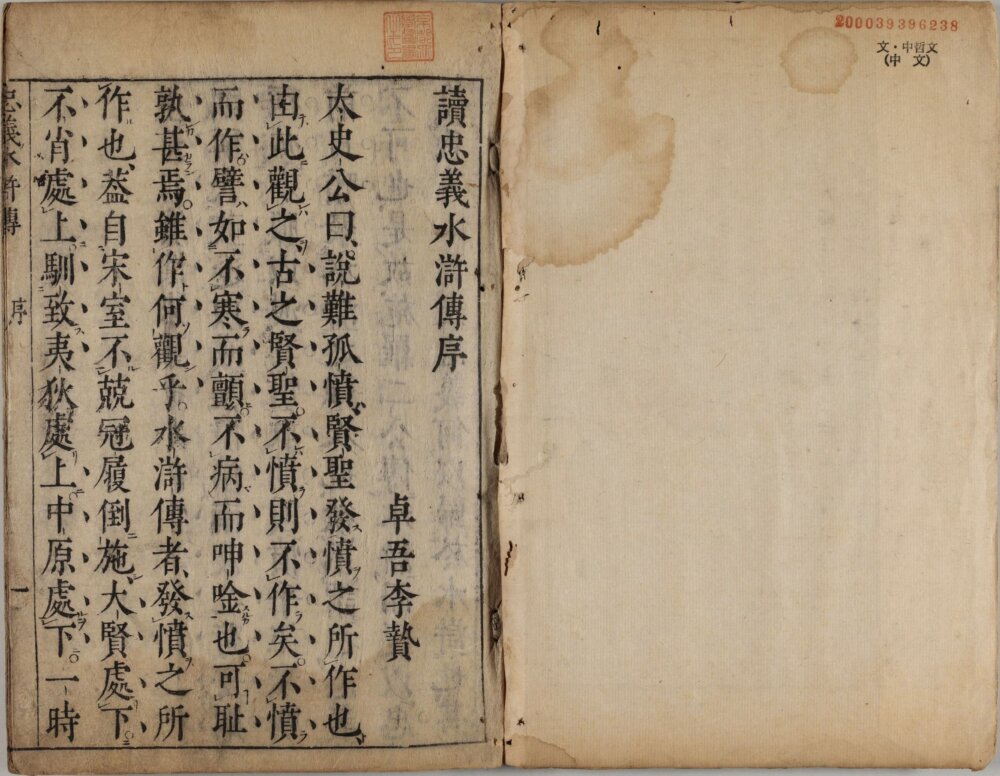 200039396238
文・中哲文
(中文)
讀忠義水滸傳序
卓吾李贄
太史公曰說難孤憤賢聖發憤之所作也
由此觀之古之賢聖不憤則不作矣不憤
而作譬如不寒而顫不病而呻唫也可耻
孰甚焉雖作何觀乎水滸傳者發憤之所
作也葢自宋室不兢冠履倒施大賢處下
不肖處上馴致夷狄處上中原處下一時
忠義水滸傳 序 一